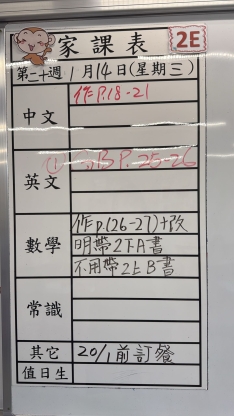 家課表 2E
第二十週 1月14日(星期三)
中文 作P.18-21
英文 ① GB P.25-26
數學 作p.(26-27)+改
明帶2下A書
不用帶2上B書
常識
其它 20/1前訂餐
值日生